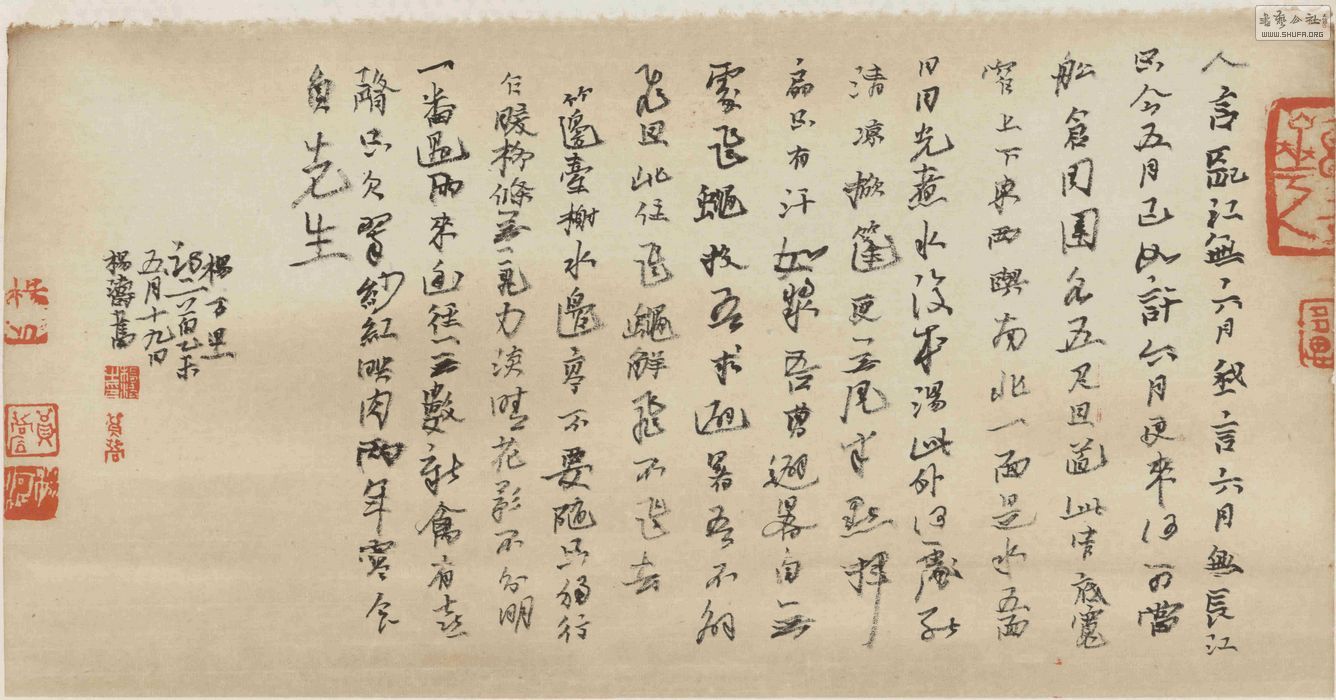 人言長江無六月我言六月無長江
只今五月已如許六月更來何可當
船倉周圍各五尺且道此中底寬
窄上下東西與南北一面是水五面
日日光煮水復成湯此外何處能
清涼掀篷更無風半點揮
扇只有汗如漿吾曹避暑自無
處飛蠅投吾求避暑吾不解
飛且此住飛蠅解飛不飛去
竹邊臺榭水邊亭不要隨只獨行
乍暖柳條無氣力淡晴花影不分明
一番過雨來幽徑無數新禽有喜
聲只欠翠紗紅映肉兩年寒食
負先生
楊万里
詩二首乙未
五月十九日
楊濤書
WWW.SHUFA.ORG